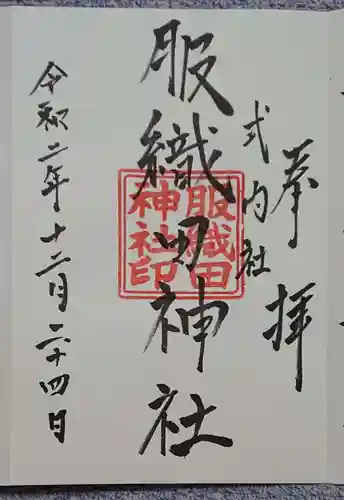 奉拝
式内社
服織田神社
服織田
神社印
令和二年十二月二十四日